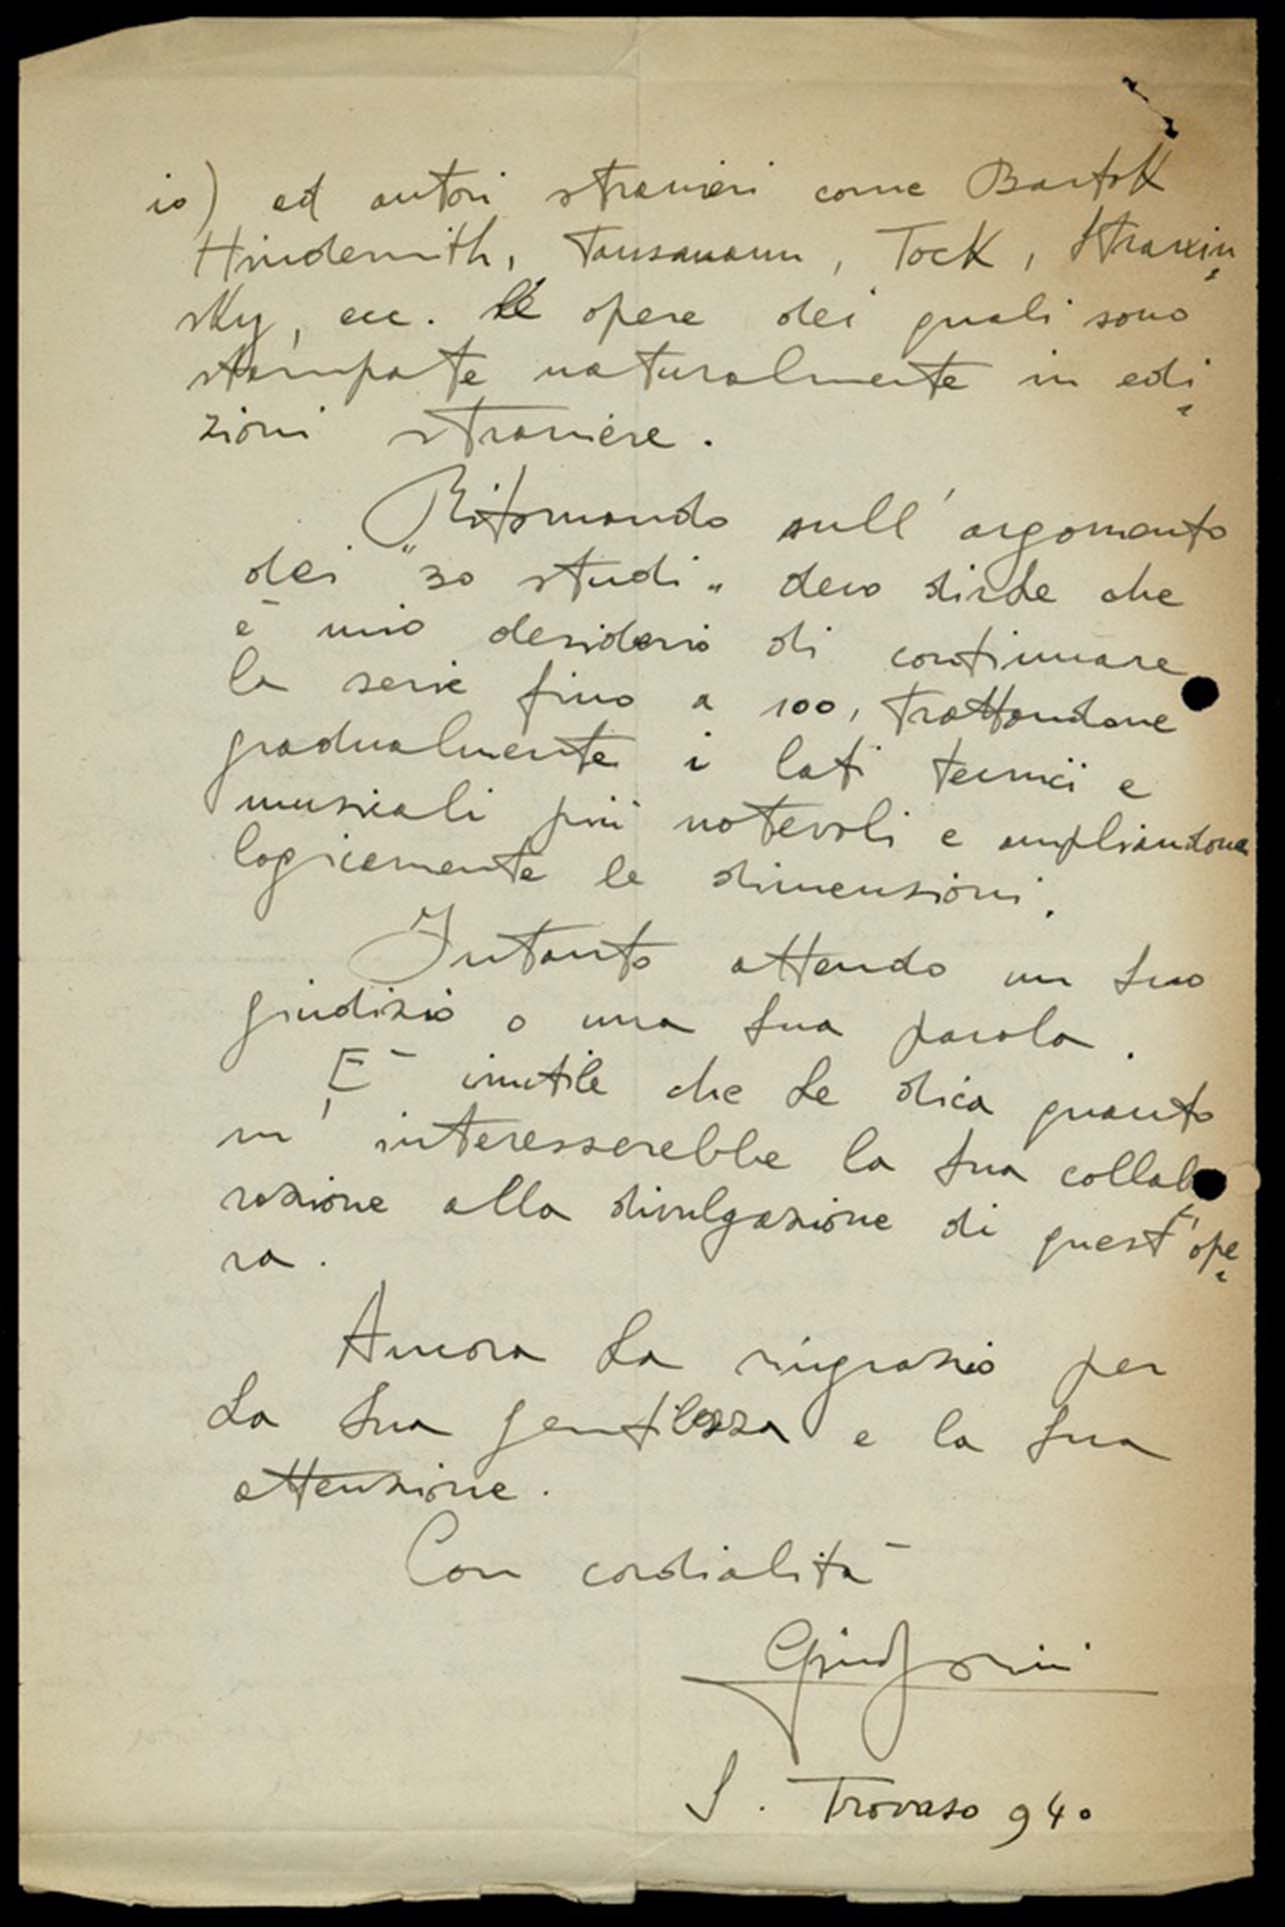 io) ed autori stranieri come Bartok
Hindemith, Tansmann, Tock, Strawin
sky, ecc. le opere dei quali sono
stampate naturalmente in edi
zioni straniere.
Ritornando sull'argomento
dei "30 studi" devo dirLe che
è mio desiderio di continuare
la serie fino a 100, trattandone
gradualmente i lati tecnici e
musicali più notevoli e ampliandone
logicamente le dimensioni.
Intanto attendo un Suo
giudizio o una Sua parola.
È inutile che Le dica quanto
m'interesserebbe la Sua collabo
razione alla divulgazione di quest'ope
ra.
Ancora La ringrazio per
La Sua gentilezza e la Sua
attenzione.
Con cordialità
S. Trovaso 940